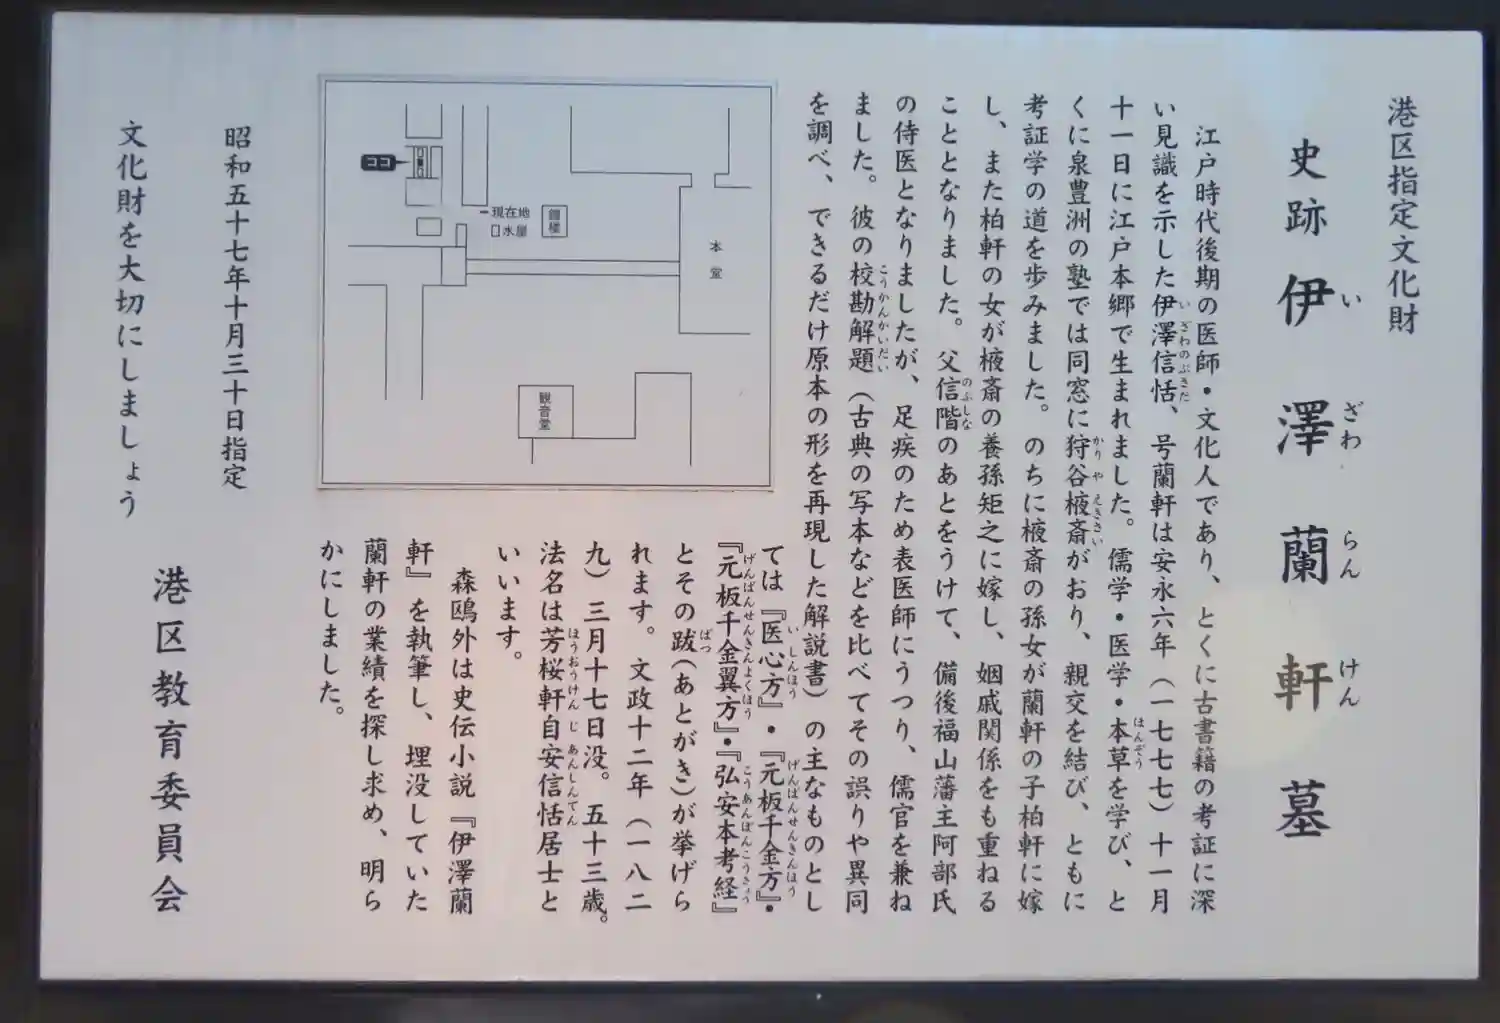 港区指定文化財
史跡 伊澤蘭軒墓
い ざわ らん けん
江戸時代後期の医師・文化人であり、とくに古書籍の考証に深
い見識を示した伊澤信恬、号蘭軒は安永六年（一七七七）十一月
い ざわのぶさだ
十一日に江戸本郷で生まれました。儒学・医学・本草を学び、と
ほんぞう
くに泉豊洲の塾では同窓に狩谷棭斎がおり、親交を結び、ともに
かり や えきさい
考証学の道を歩みました。のちに棭斎の孫女が蘭軒の子柏軒に嫁
し、また柏軒の女が棭斎の養孫矩之に嫁し、姻戚関係をも重ねる
こととなりました。父信階のあとをうけて、備後福山藩主阿部氏
のぶしな
の侍医となりましたが、足疾のため表医師にうつり、儒官を兼ね
ました。彼の校勘解題（古典の写本などを比べてその誤りや異同
こうかんかいだい
を調べ、できるだけ原本の形を再現した解説書）の主なものとし
ては『医心方』・『元板千金方』・
い しんほう げんばんせんきんほう
『元板千金翼方』・『弘安本考経』
げんばんせんきんよくほう こうあんぼんこうきょう
とその跋（あとがき）が挙げら
ばつ
れます。文政十二年（一八二
九）三月十七日没。五十三歳。
法名は芳桜軒自安信恬居士と
ほうおうけん じ あんしんてん
いいます。
森鷗外は史伝小説『伊澤蘭
軒』を執筆し、埋没していた
蘭軒の業績を探し求め、明ら
かにしました。
ココ
現在地
水屋
鐘楼
本堂
観音堂
昭和五十七年十月三十日指定
文化財を大切にしましょう
港区教育委員会